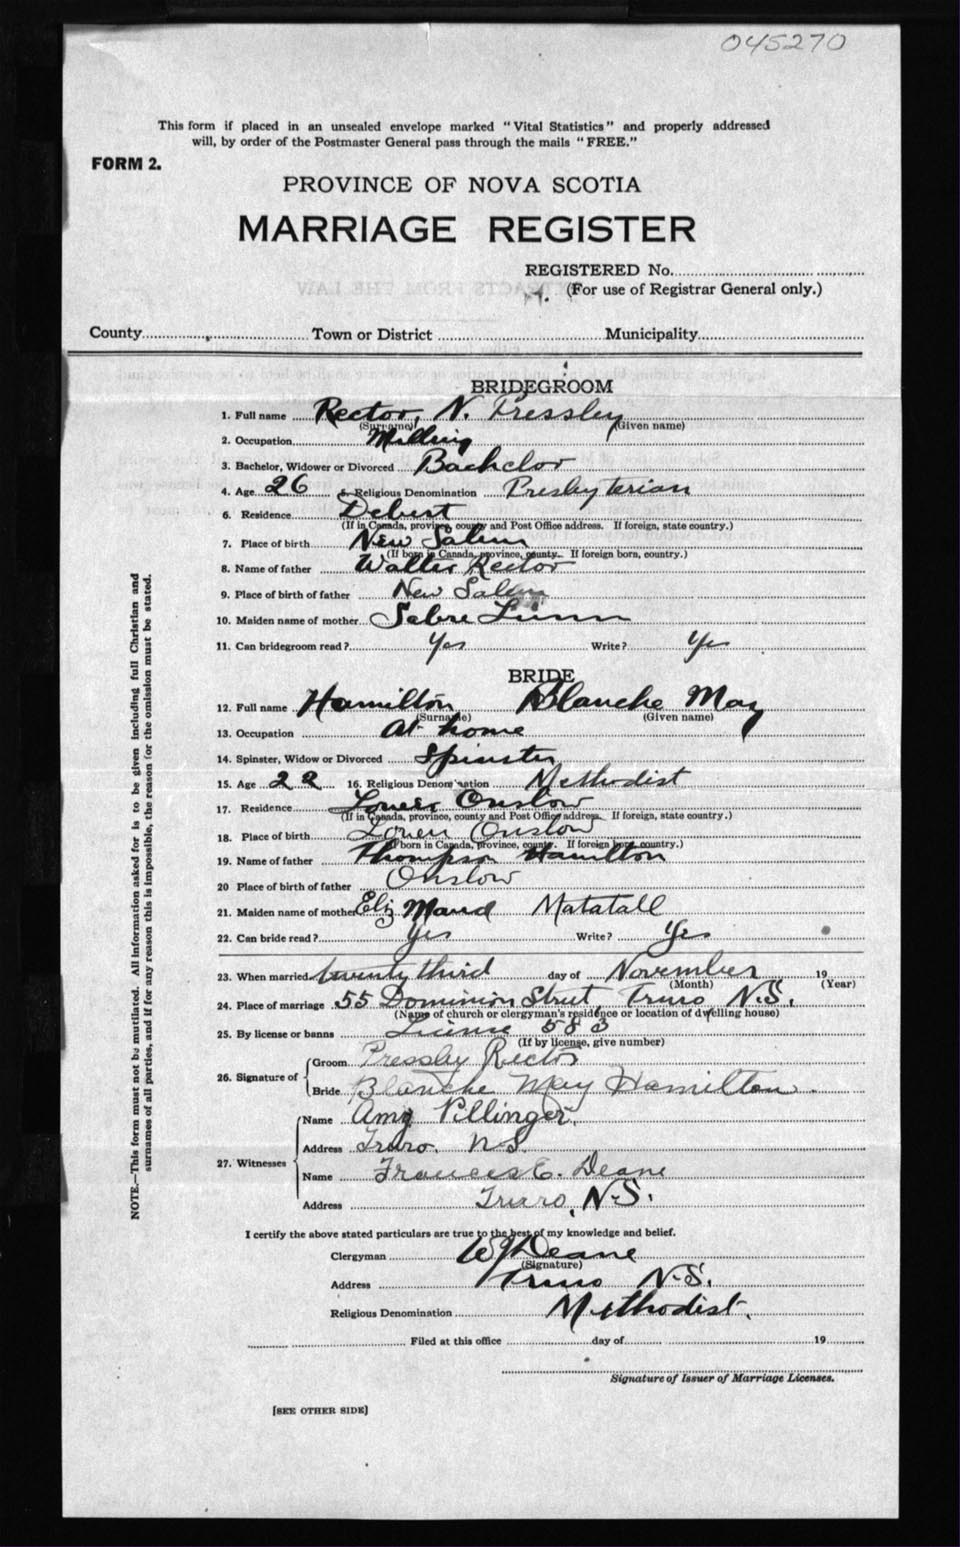 045270
This form if placed in an unsealed envelope marked "Vital Statistics" and properly addressed
will, by order of the Postmaster General pass through the mails "FREE."
FORM 2.
PROVINCE OF NOVA SCOTIA
MARRIAGE REGISTER
REGISTERED No.
(For use of Registrar General only.)
County Town or District Municipality
BRIDEGROOM
1. Full name Rector, N. Pressley
(Surname) (Given name)
2. Occupation Milling
3. Bachelor, Widower or Divorced Bachelor
4. Age 26 5. Religious Denomination Presbyterian
6. Residence Debert
(If in Canada, province, county and Post Office address. If foreign, state country.)
7. Place of birth New Salem
(If born in Canada, province, county. If foreign born, country.)
8. Name of father Walter Rector
9. Place of birth of father New Salem
10. Maiden name of mother
11. Can bridegroom read? Yes Write? Yes
BRIDE
12. Full name Hamilton Blanche May
(Surname) (Given name)
13. Occupation At home
14. Spinster, Widow or Divorced Spinster
15. Age 22 16. Religious Denomination Methodist
17. Residence Lower Onslow
(If in Canada, province, county and Post Office address. If foreign, state country.)
18. Place of birth Lower Onslow
(If born in Canada, province, county. If foreign born, country.)
19. Name of father Thompson Hamilton
20 Place of birth of father Onslow
21. Maiden name of mother Eliz Maud Matatall
22. Can bride read? Yes Write? Yes
23. When married twenty third day of November 19
(Month) (Year)
24. Place of marriage 55 Dominion Street, Truro N.S.
(Name of church or clergyman's residence or location of dwelling house)
25. By license or banns License 583
(If by license, give number)
26. Signature of Groom Pressley Rector
Bride Blanche May Hamilton
27. Witnesses Name Amy Pillinger.
Address Truro. N.S.
Name Frances E. Deane
Address Truro, N.S.
I certify the above stated particulars are true to the best of my knowledge and belief.
Clergyman W J Deane
(Signature)
Address Truro N.S.
Religious Denomination Methodist.
Filed at this office day of 19
Signature of Issuer of Marriage Licenses.
[SEE OTHER SIDE]
NOTE.—This form must not be mutilated. All information asked for is to be given including full Christian and
surnames of all parties, and if for any reason this is impossible, the reason for the omission must be stated.